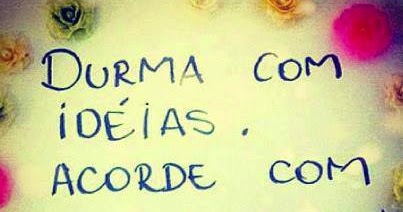 DURMA COM
IDÉIAS.
ACORDE COM